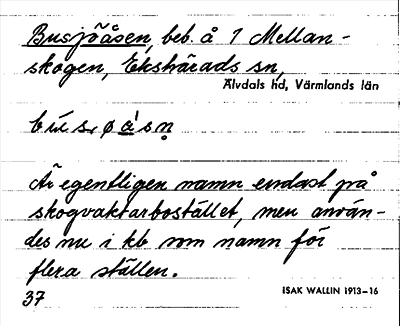 Busjöåsen, beb. å 1 Mellan-
skogen, Ekshärads sn,
Älvdals hd, Värmlands län
Är egentligen namn endast på
skogvaktarbostället, men använ-
des nu i kb som namn för
flera ställen.
37
ISAK WALLIN 1913-16